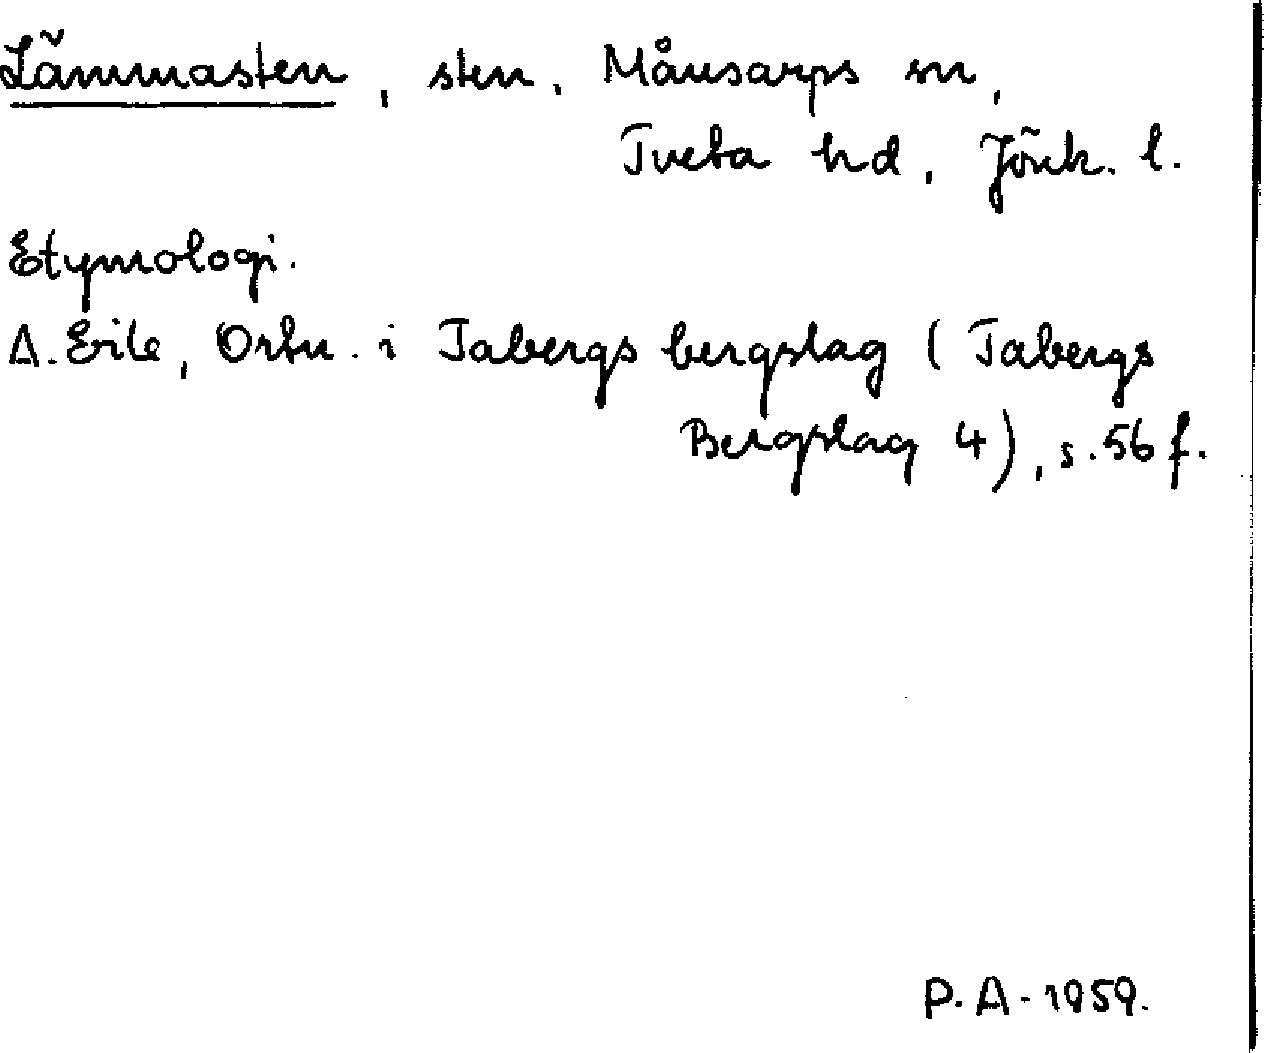 Lämmasten, sten, Månsarps sn,
Tveta hd, Jönk. l.
Etymologi.
A. Ejle, Ortn. i Tabergs bergslag (Tabergs
Bergslag 4), s. 56 f.
P. A. 1959.